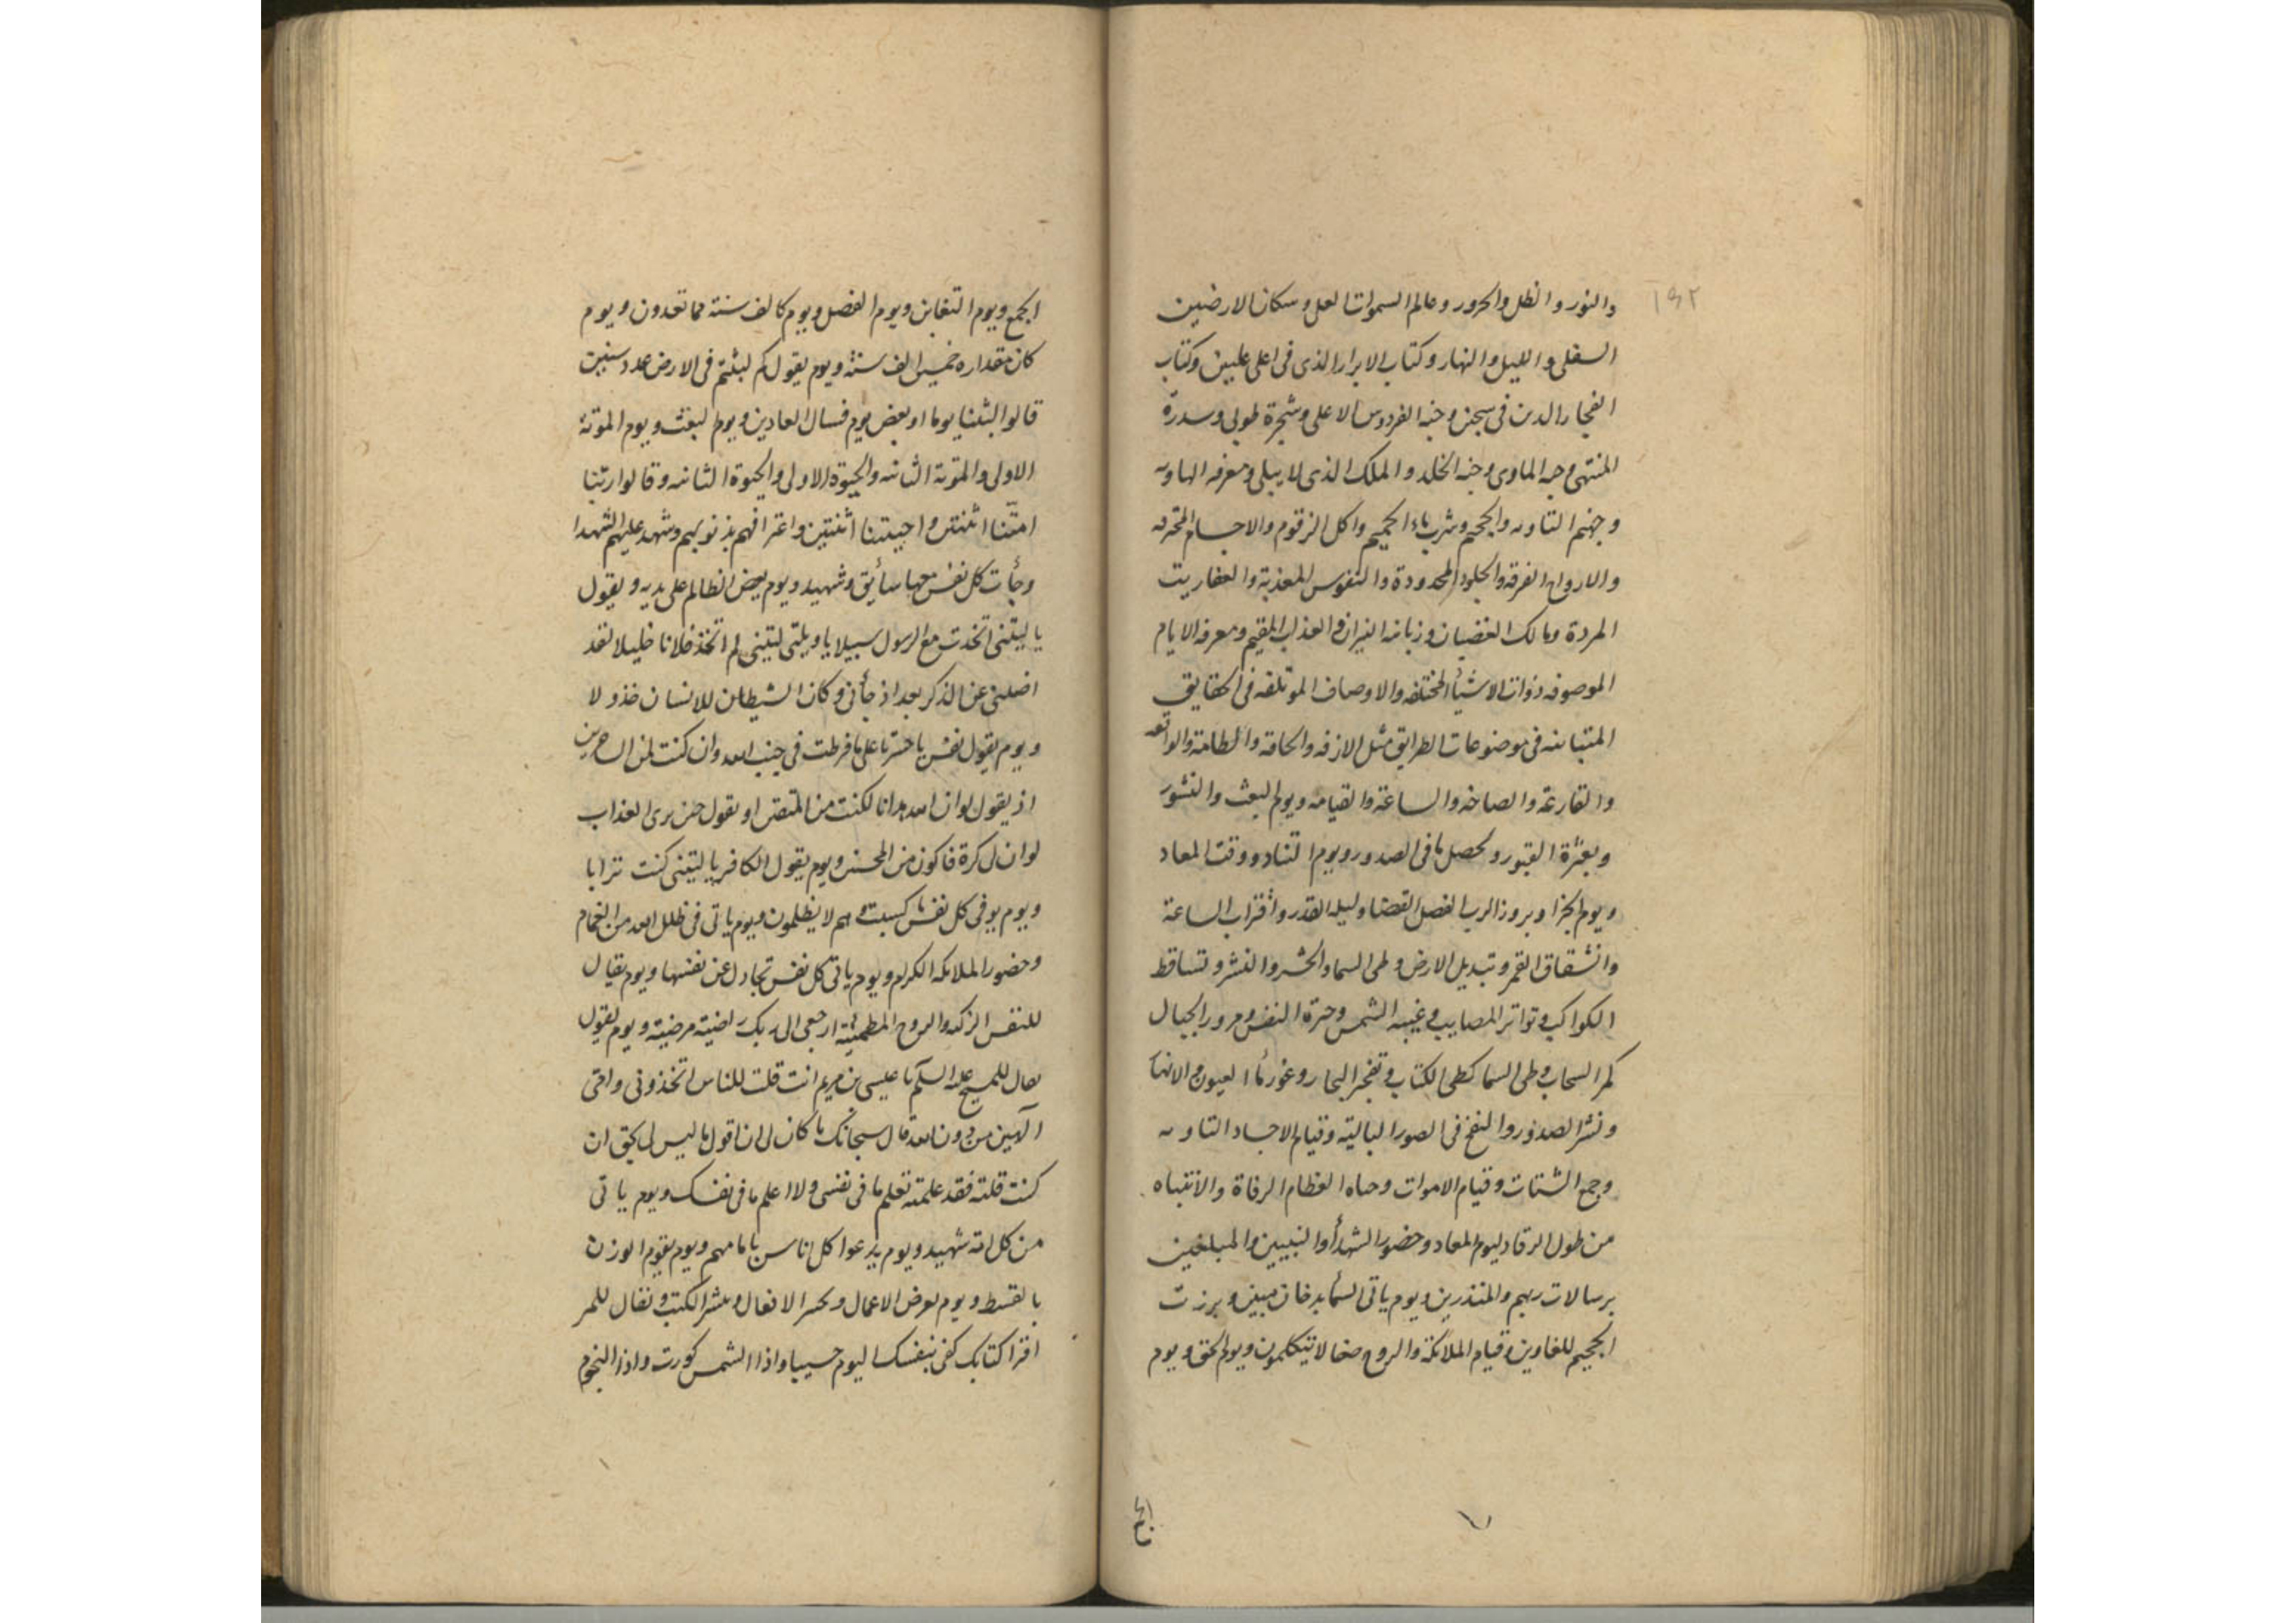 ١٩٢
والنور والظل والحرور وعالم السموات العلى وسكان الارضين
السفلى والليل والنهار وكتاب الابرار الذى فى اعلى عليين وكتاب
الفجار الدين فى سجين وجنة الفردوس الاعلى وشجرة طوبى وسدرة
المنتهى وجنه الماوى وجنه الخلد والملك الذى لا يبلى ومعرفه الهاويه
وجهنم التاويه والجحيم وشرب ماء الحميم واكل الزقوم والاجسام المحترقه
والارواح الفرقة والجلود المحدودة والنفوس المعذبة والعفاريت
المردة ومالك الغضبان وزبانه النيران والعذاب المقيم ومعرفه الايام
الموصوفه ذوات الاشيأ المختلفه والاوصاف الموتلفه فى الحقايق
المتباينه فى موضوعات الطرايق مثل الازفه والحاقة والطامة والواقعه
والقارعة والصاخه والساعة والقيامه ويوم البعث والنشور
وبعثرة القبور وتحصل ما فى الصدور ويوم التناد ووقت المعاد
ويوم الجزا وبروز الرب لفصل القضا وليله القدر واقتراب الساعة
وانشقاق القمر وتبديل الارض وطى السما والحشر والنشر وتساقط
الكواكب وتواتر المصايب وغيبه الشمس وحسرة النفس ومرور الجبال
كمر السحاب وطى السما كطى الكتاب وتفجر البحار وغور ماء العيون والانهار
ونشر الصدور والنفخ فى الصور البالية وقيام الاجساد التاويه
وجمع الشتات وقيام الاموات وحياه العظام الرفاة والانتباه
من طول الرقاد ليوم المعاد وحضور الشهدأ والنبيين والمبلغين
برسالات ربهم والمنذرين ويوم ياتى السمأ بدخان مبين وبرزت
الجحيم للغاوين وقيام الملائكة والروح صفا لا يتكلمون ويوم الحق ويوم
الجمع
الجمع ويوم التغابن ويوم الفصل ويوم كالف سنة مما تعدون ويوم
كان مقداره خمسين الف سنة ويوم يقول كم لبثتم فى الارض عدد سنين
قالوا لبثنا يوما او بعض يوم فسال العادين ويوم البعث ويوم الموتة
الاولى والموته الثانيه والحيوة الاولى والحيوة الثانيه وقالوا ربنا
امتّنا اثنتين واحييتنا اثنتين واعترافهم بذنوبهم وشهد عليهم الشهدا
وجأت كل نفس معها سأيق وشهيد ويوم يعض الظالم على يديه ويقول
يا ليتنى اتخدت مع الرسول سبيلا يا ويلتى ليتنى لم اتخذ فلانا خليلا لقد
اضلنى عن الذكر بعد اذ جأنى وكان الشيطان للانسان خذولا
ويوم يقول نفس يا حسرتا على ما فرطت فى جنب الله وان كنت لمن الساخرين
اذ يقول لوان الله هدانا لكنت من المتقين او يقول حين يرى العذاب
لوان لى كرة فاكون من المحسنين ويوم يقول الكافر يا ليتنى كنت ترابا
ويوم يوفى كل نفس ما كسبت وهم لا يظلمون ويوم ياتى فى ظلل الله من الغمام
وحضور الملائكه الكرام ويوم ياتى كل نفس تجادل عن نفسها ويوم يقال
للنفس الزكيه والروح المطمئنة ارجعى الى ربك راضية مرضية ويوم يقول
يقال للمسيح عليه السلام يا عيسى بن مريم انت قلت للناس اتخذونى وامى
الآهين من دون الله قال سبحانك ما كان لى ان اقول ما ليس لى بحق ان
كنت قلته فقد علمته تعلم ما فى نفسى ولا اعلم ما فى نفسك ويوم ياتى
من كل امة شهيد ويوم يدعوا كل اناس بامامهم ويوم يقوم الوزن
بالقسط ويوم تعرض الاعمال وتحسر الافعال وتنشر الكتب ويقال للمر
اقرا كتابك كفى بنفسك اليوم حسيبا واذا الشمس كورت واذا النجوم